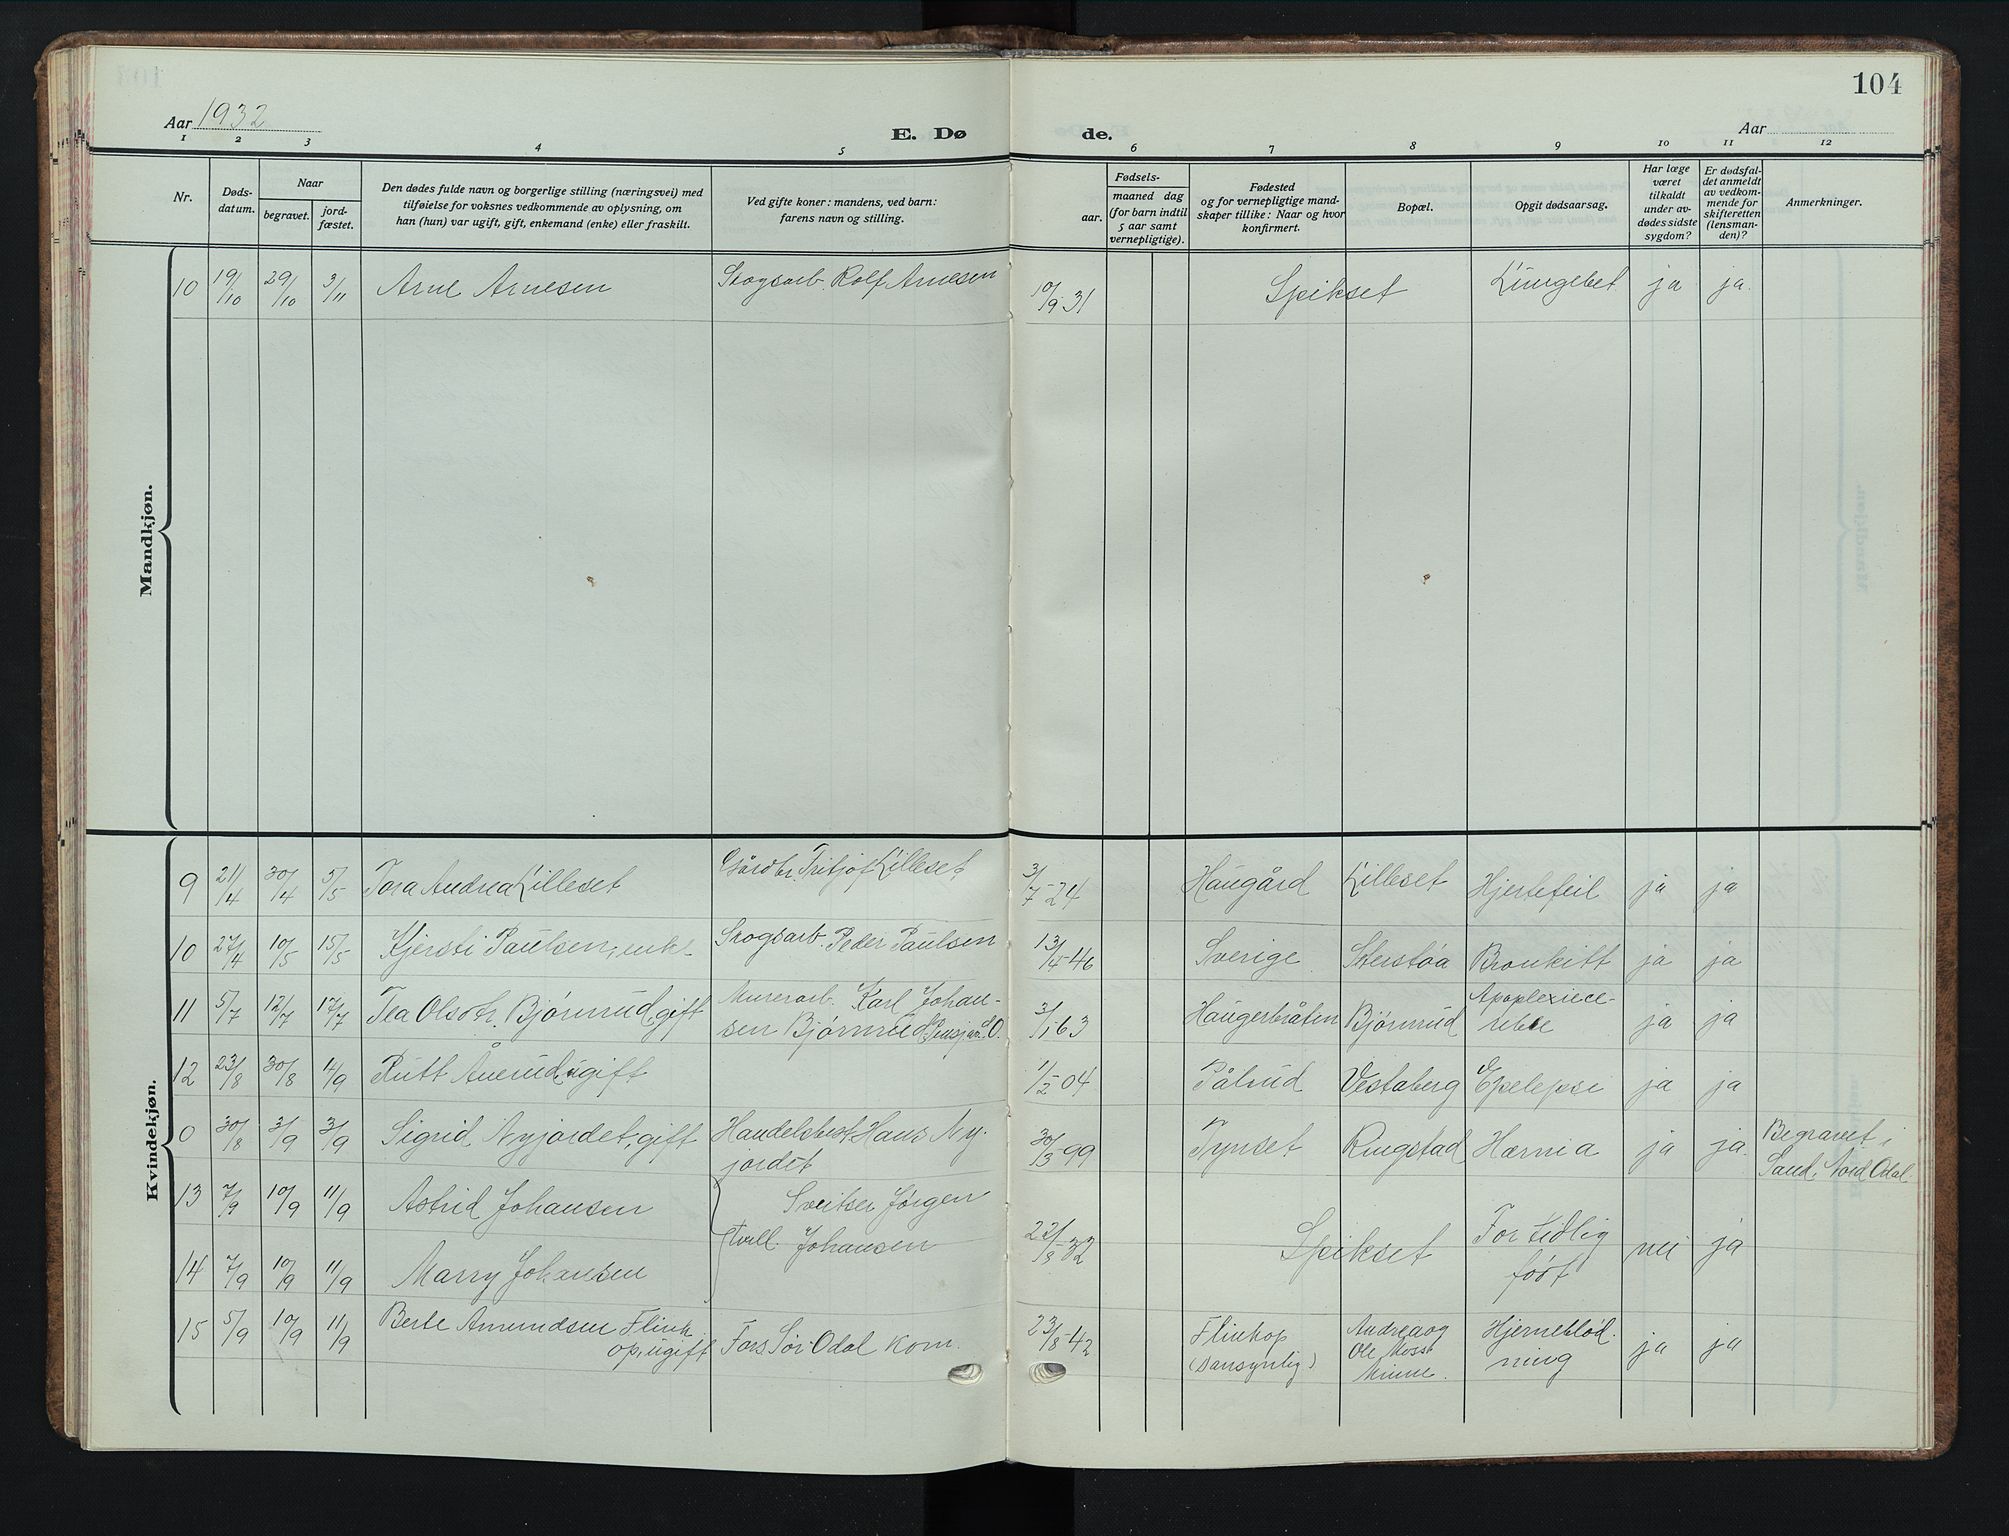 104
Aar 1932
E. Dø
de.
Aar
1 2 3 4 5 6 7 8 9 10 11 12
Nr.
Døds-
datum.
Naar
begravet.
jord-
fæstet.
Den dødes fulde navn og borgerlige stilling (næringsvei) med
tilføielse for voksnes vedkommende av oplysning, om
han (hun) var ugift, gift, enkemand (enke) eller fraskilt.
Ved gifte koner: mandens, ved barn:
farens navn og stilling.
Fødsels-
aar.
maaned dag
(for barn indtil
5 aar samt
vernepligtige).
Fødested
og for vernepligtige mand-
skaper tillike: Naar og hvor
konfirmert.
Bopæl.
Opgit dødsaarsag.
Har læge
været
tilkaldt
under av-
dødes sidste
sygdom?
Er dødsfal-
det anmeldt
av vedkom-
mende for
skifteretten
(lensman-
den)?
Anmerkninger.
Mandkjøn.
10 19/10 29/10 3/11 Arne Arnesen Skogsarb. Rolf Arnesen 10/9-31 Spikset Lungebet ja ja.
Kvindekjøn.
9 21/4 30/4 5/5 Tora Andrea Lilleset Gårdbr. Fritjof Lilleset 3/7-24 Haugård Lilleset Hjertefeil ja ja
10 27/4 10/5 15/5 Kjersti Paulsen, enke Skogsarb. Peder Paulsen 13/4-46 Sverige Sterstøa Bronkitt ja ja
11 5/7 12/7 17/7 Tea Olsdtr. Bjørnrud, gift Murerarb. Karl Johan-
sen Bjørnrud 3/1 63 Haugerbråten Bjørnrud Apoplexiece-
ja ja
12 23/8 30/8 4/9 Rutt Ånerud, ugift 1/2-04 Pålrud Vestaberg Epelepsi ja ja
0 30/8 3/9 3/9 Sigrid Nyjordet, gift Handelsbest. Hans Ny-
jordet 30/3-99 Tynset Ringstad Hærnia ja ja. Begravet i
Sand, Nord Odal.
13 7/9 10/9 11/9 Astrid Johansen Sveitser Jørgen
Tvill. Johansen 22/8-32 Spikset For tidlig
født nei ja
14 7/9 10/9 11/9 Marry Johansen
15 5/9 10/9 11/9 Berte Amundsen Flink
op, ugift Fors. Sør Odal kom. 23/8-42 Flinkop
(sansynlig) Andrea og
Ole Moss
Minne. Hjerneblød-
ning ja ja